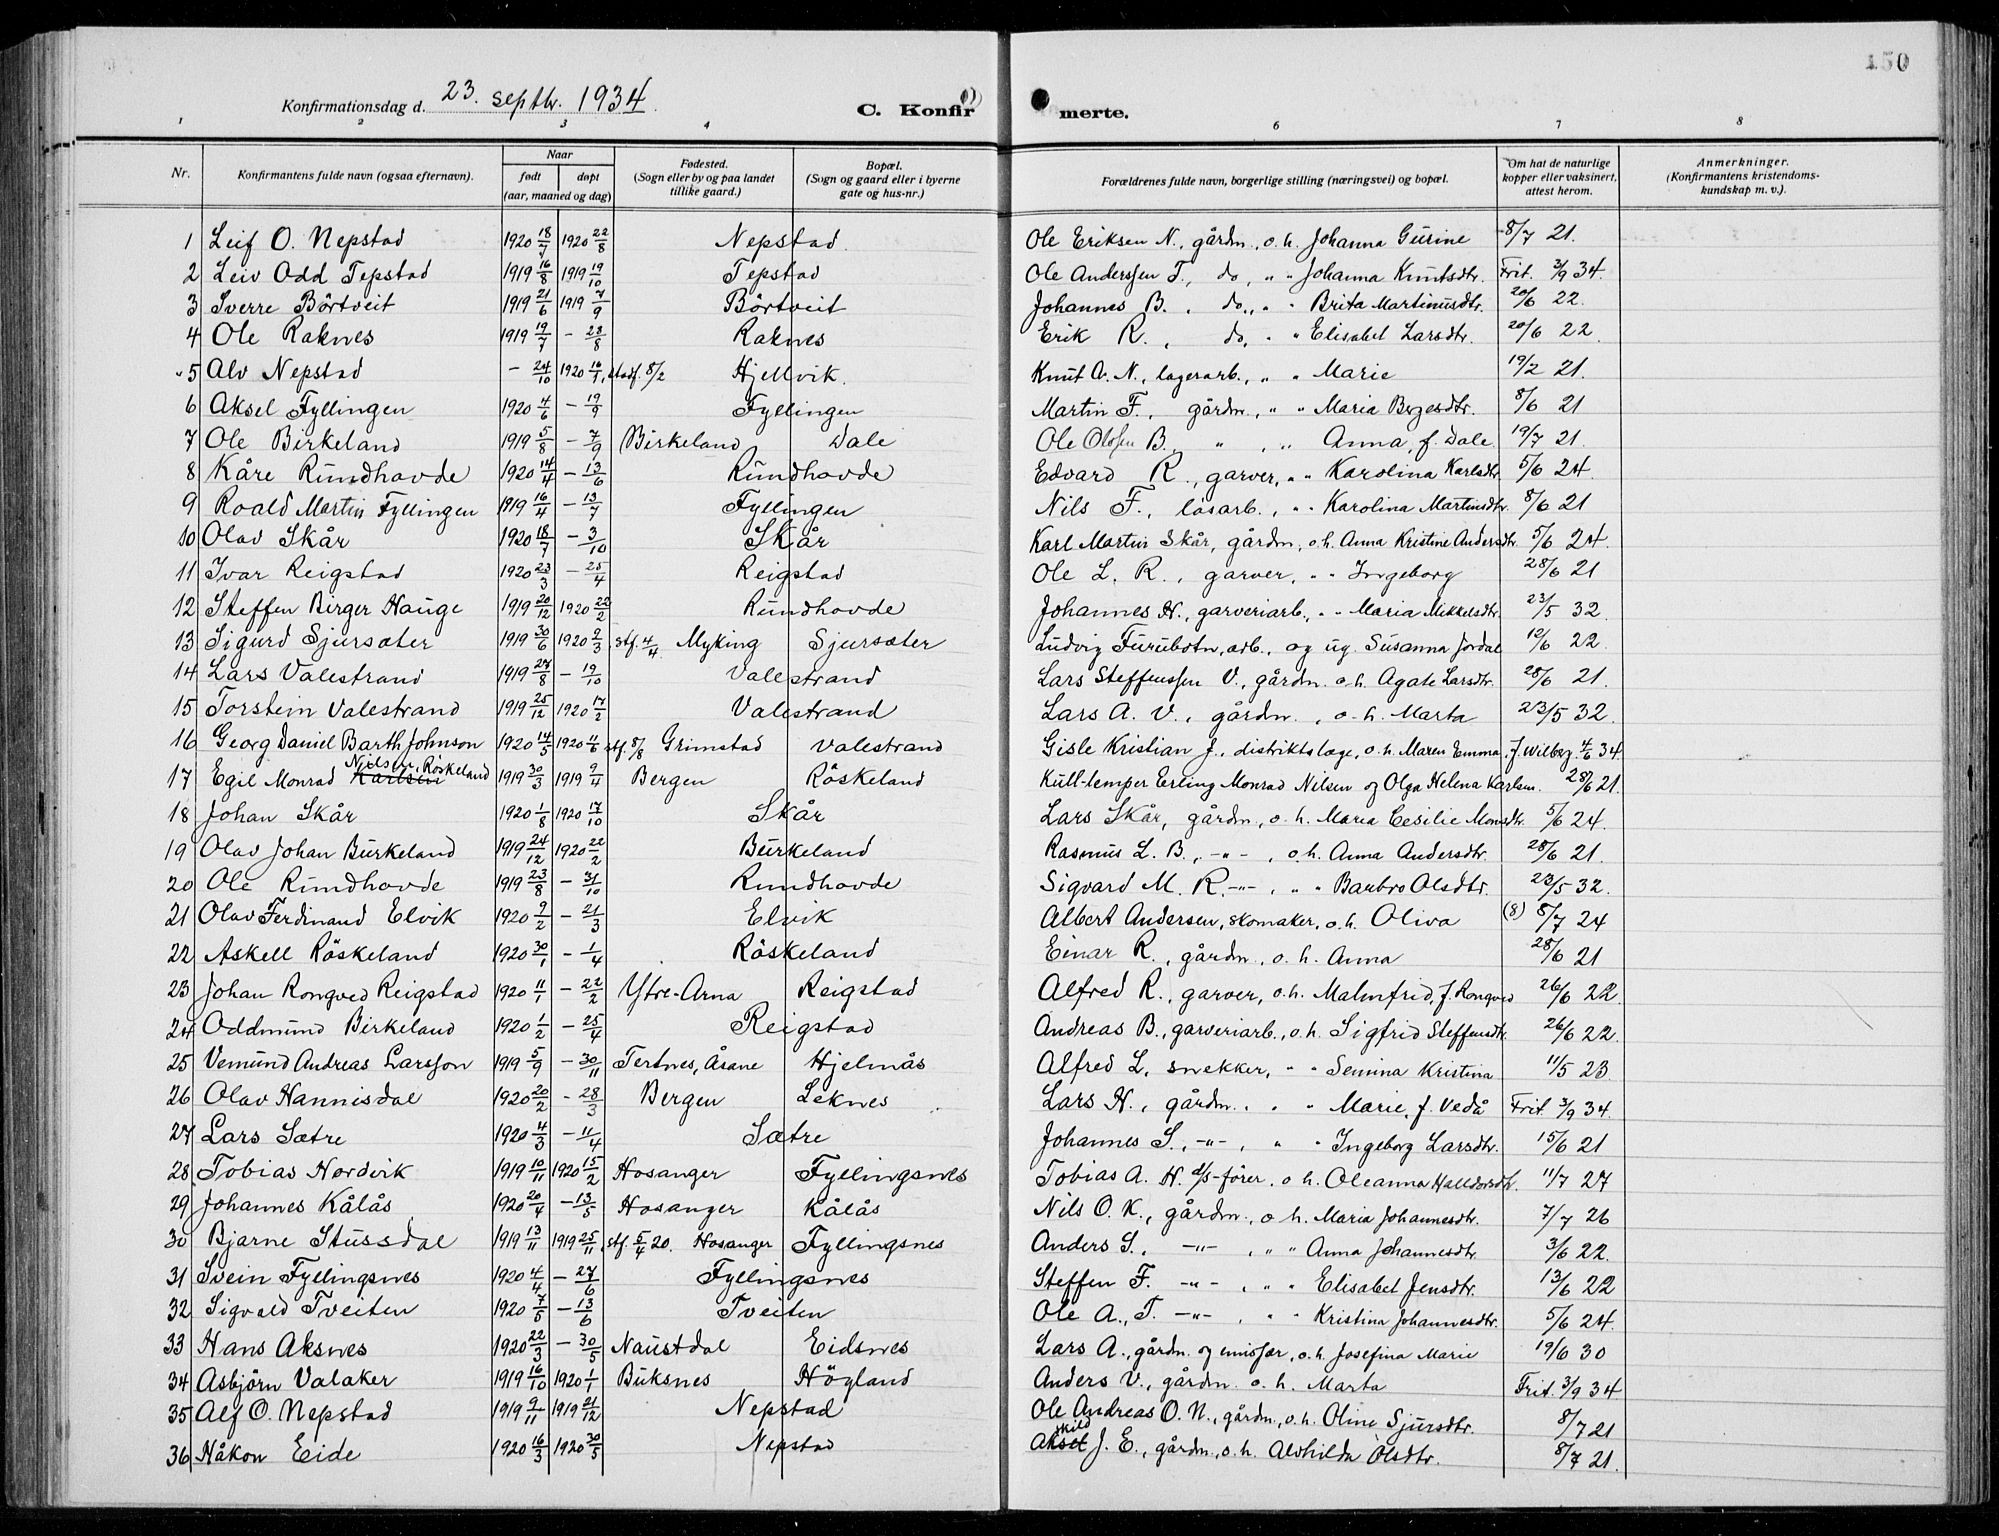 150
Konfirmationsdag d. 23. septbr. 1934.
C. Konfirmerte.
1 2 3 4 6 7 8
Nr. Konfirmantens fulde navn (ogsaa efternavn). Naar født døpt (aar, maaned og dag) Fødested. (Sogn eller by og paa landet tillike gaard.) Bopæl. (Sogn og gaard eller i byerne gate og hus-nr.) Forældrenes fulde navn, borgerlige stilling (næringsvei) og bopæl. Om hat de naturlige kopper eller vaksinert, attest herom. Anmerkninger. (Konfirmantens kristendomskundskap m. v.).
1 Leif O. Nepstad 1920 18/7 1920 22/8 Nepstad. Ole Eriksen N., gårdm., o. h. Johanna Gurine 8/7 21.
2 Leiv Odd Tepstad 1919 16/8 1919 19/10 Tepstad Ole Anderssen T., do, " " Johanna Knutsdtr. Frit. 3/9 34.
3 Sverre Börtveit 1919 21/6 1919 7/9 Börtveit Johannes B. , do., " " Brita Martinusdtr. 20/6 22.
4 Ole Raknes 1919 19/7 – 28/8 Raknes Erik R. , do, " " Elisabet Larsdtr. 20/6 22.
5 Alv Nepstad – 24/10 1920 16/1, stadf. 8/2 Hjellvik. Knut A. N., lagerarb., " " Marie 19/2 21.
6 Aksel Fyllingen 1920 4/6 – 19/9 Fyllingen Martin F., gårdm., " " Maria Bergesdtr. 8/6 21
7 Ole Birkeland 1919 5/8 – 7/9 Birkeland Dale Ole Olssen B., " , " Anna, f. Dale. 19/7 21.
8 Kåre Rundhovde 1920 14/4 – 13/6 Rundhovde Edvard R., garver, " " Karolina Karlsdtr. 5/6 24.
9 Roald Martin Fyllingen 1919 16/4 – 13/7 Fyllingen Nils F., lösarb., " " Karolina Martinsdtr. 8/6 21
10 Olav Skår 1920 18/7 – 3/10 Skår Karl Martin Skår, gårdm., o. h. Anna Kristine Andersdtr. 5/6 24.
11 Ivar Reigstad 1920 23/3 – 25/4 Reigstad Ole L. R., garver, " " Ingeborg 28/6 21
12 Steffen Birger Hauge 1919 20/12 1920 22/2 Rundhovde Johannes H., garveriarb., " " Maria Mikkelsdtr. 23/5 32.
13 Sigurd Sjursæter 1919 30/6 1920 9/3, stf. 4/4 Myking Sjursæter Ludvig Furubotn, arb., og ug. Susanna Jordal 12/6 22.
14 Lars Valestrand 1919 27/8 – 19/10 Valestrand Lars Steffenssen V., gårdm. o. h. Agate Larsdtr. 28/6 21.
15 Torstein Valestrand 1919 25/12 1920 17/2 Valestrand Lars A. V., gårdm., o. h. Marta 23/5 32.
16 Georg Daniel Barth Johnson 1920 14/5 1920 11/6 stf. 8/8 Grimstad Valestrand Gisle Kristian J., distriktslæge, o. h. Maren Emma, f. Wilberg. 4/6 34.
17 Egil Monrad Karlsen Nilsen, Röskeland 1919 30/3 1919 9/4 Bergen Röskeland Kull-lemper Erling Monrad Nilsen og Olga Helena Karlsen. 28/6 21.
18 Johan Skår 1920 1/8 1920 17/10 Skår Lars Skår, gårdm., o. h. Maria Cesilie Monsdtr. 5/6 24.
19 Olav Johan Burkeland 1919 24/12 1920 22/2 Burkeland Rasmus L. B., –"– , o. h. Anna Andersdtr. 28/6 21.
20 Ole Rundhovde 1919 23/8 – 31/10 Rundhovde Sigvard M. R. –"– , " " Barbro Olsdtr. 23/5 32.
21 Olav Ferdinand Elvik 1920 9/2 – 21/3 Elvik Albert Andersen, skomaker, o. h. Oliva (8) 8/7 24
22 Askell Röskeland 1920 30/1 – 1/4 Röskeland Einar R., gårdm., o. h. Anna 28/6 21
23 Johan Rongved Reigstad 1920 11/1 – 22/2 Ytre-Arna Reigstad Alfred R., garver, o. h. Malmfrid, f. Rongved 26/6 22.
24 Oddmund Birkeland 1920 1/2 – 25/4 Reigstad Andreas B., garveriarb., o. h. Sigfrid Steffensdtr. 26/6 22.
25 Vemund Andreas Larsson 1919 5/9 – 30/11 Tertnes, Åsane Hjelmås Alfred L, snekker, " " Semina Kristina 11/5 23.
26 Olav Hannisdal 1920 20/2 – 28/3 Bergen Leknes Lars H., gårdm., " " Marie, f. Vedå Frit. 3/9 34.
27 Lars Sætre 1920 4/3 – 11/4 Sætre Johannes S., –"– , " " Ingeborg Larsdtr. 15/6 21
28 Tobias Nordvik 1919 10/11 1920 15/2 Hosanger Fyllingsnes Tobias A. N. d/s-förer, o. h. Oleanna Halldorsdtr. 11/7 27
29 Johannes Kålås 1920 20/4 – 13/5 Hosanger Kålås Nils O. K., gårdm., o. h. Maria Johannesdtr. 7/7 26
30 Bjarne Stussdal 1919 13/11 1919 25/11, stf. 5/4 20. Hosanger Fyllingsnes Anders S., –"– , " " Anna Johannesdtr. 3/6 22.
31 Svein Fyllingsnes 1920 4/4 – 27/6 Fyllingsnes Steffen F. –"– , " " Elisabet Jensdtr. 13/6 22
32 Sigvald Tveiten 1920 7/5 – 13/6 Tveiten Ole A., T. –"– , " " Kristina Johannesdtr. 5/6 24.
33 Hans Aksnes 1920 22/3 – 30/5 Naustdal Eidsnes Lars A., gårdm. og emissær, o. h. Josefina Marie 19/6 30
34 Asbjörn Valaker 1919 16/10 1920 1/1 Buksnes Högland Anders V., gårdm. o. h. Marta Frit. 3/9 34
35 Alf O. Nepstad 1919 9/11 1919 21/12 Nepstad Ole Andreas O. N., gårdm., o. h. Oline Sjursdtr. 8/7 21
36 Håkon Eide 1920 16/3 1920 30/5 Nepstad Aksel skild J. E., gårdm., o. h. Alvhilda Olsdtr. 8/7 21.